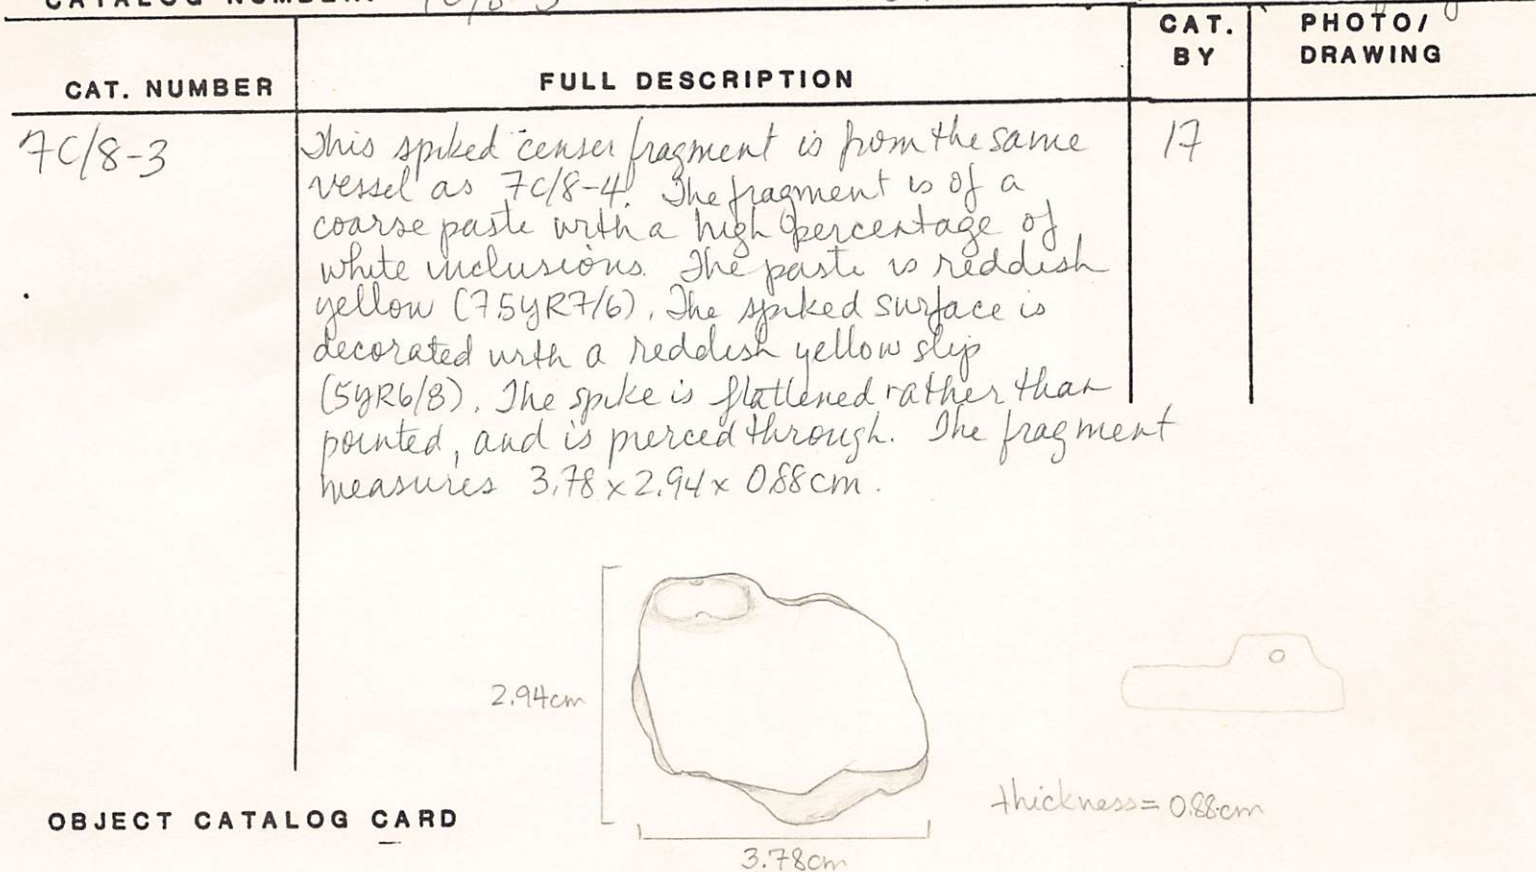 CATALOG NUMBER: 7C/8-3
CAT. NUMBER
FULL DESCRIPTION
CAT.
BY
PHOTO/
DRAWING
7C/8-3
This spiked censer fragment is from the same
vessel as 7C/8-4. The fragment is of a
coarse paste with a high percentage of
white inclusions. The paste is reddish
yellow (7.5YR7/6). The spiked surface is
decorated with a reddish yellow slip
(5YR6/8). The spike is flattened rather than
pointed, and is pierced through. The fragment
measures 3.78 x 2.94 x 0.88cm.
17
2.94cm
3.78cm
thickness= 0.88cm
OBJECT CATALOG CARD